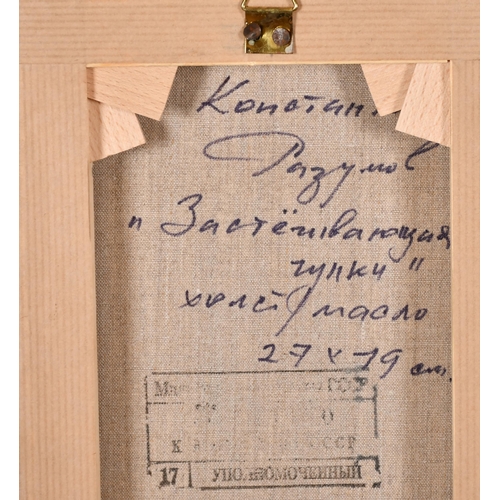 Констан
Разумов
"Застёгивающая
чулки"
холст/масло
27 x 19 см.
СССР
К СССР
17 УПОЛНОМОЧЕННЫЙ